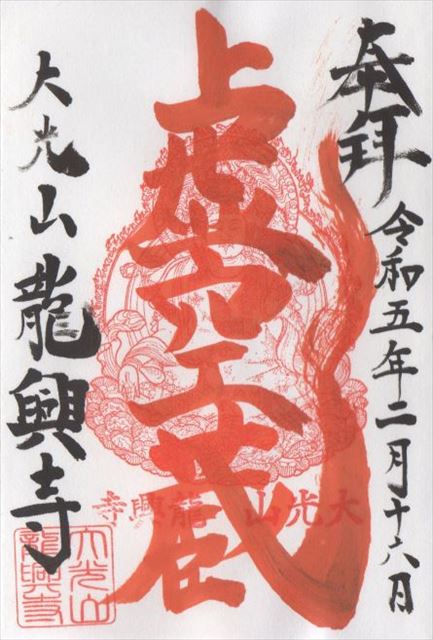 奉拝 令和五年二月十六日
虚空蔵
大光山 龍興寺
大光山 龍興寺
大光山
龍興寺